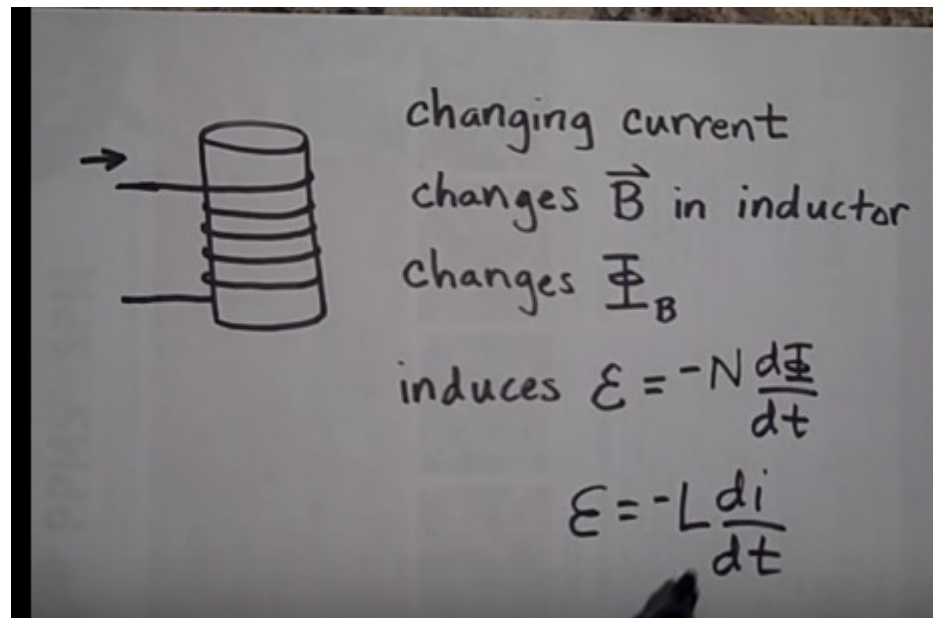 changing current
changes B⃗ in inductor
changes Φ_B
induces ℰ = -N dΦ/dt
ℰ = -L di/dt